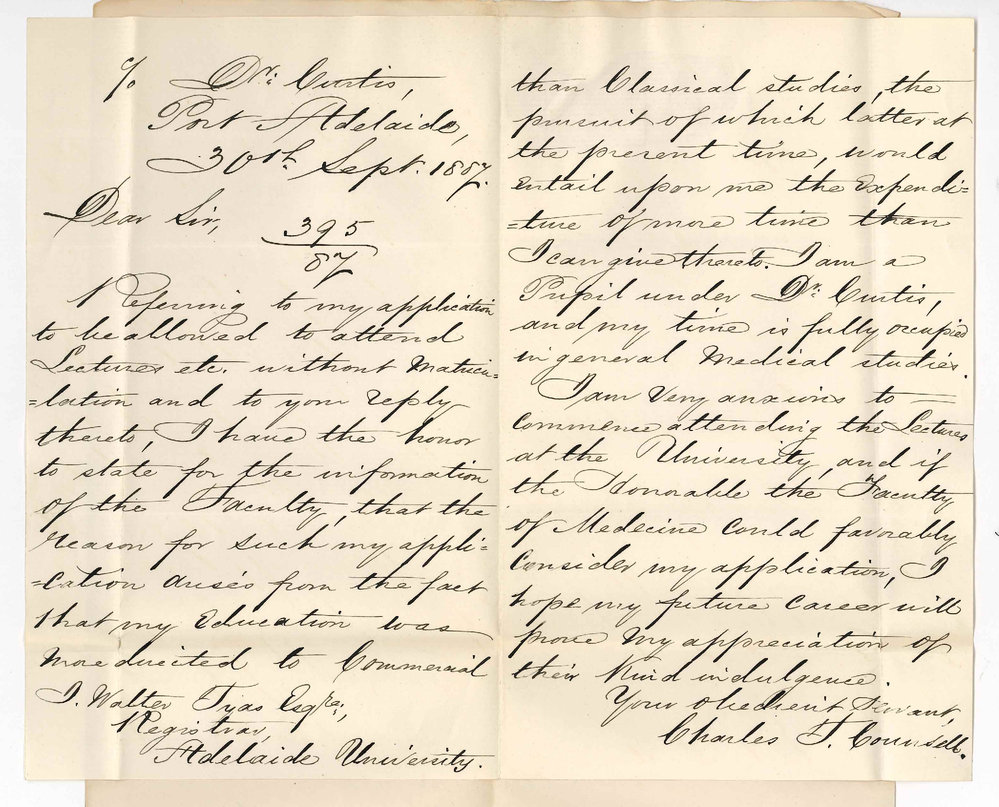 c/o Dr. Curtis,
Port Adelaide,
30th. Sept. 1887.
Dear Sir,
395
87
Referring to my application
to be allowed to attend
Lectures etc. without Matricu=
=lation and to your reply
thereto, I have the honor
to state for the information
of the Faculty, that the
reason for such my appli=
=cation arises from the fact
that my Education was
more directed to Commercial
J. Walter Tyas Esqre,
Registrar,
Adelaide University.
than Classical studies, the
pursuit of which latter at
the present time, would
entail upon me the Expendi=
=ture of more time than
I can give thereto. I am a
Pupil under Dr. Curtis,
and my time is fully occupied
in general Medical studies.
I am Very anxious to
Commence attending the Lectures
at the University, and if
the Honorable the Faculty
of Medecine Could favorably
Consider my application, I
hope my future Career will
prove My appreciation of
their Kind indulgence.
Your obedient Servant,
Charles T. Counsell.